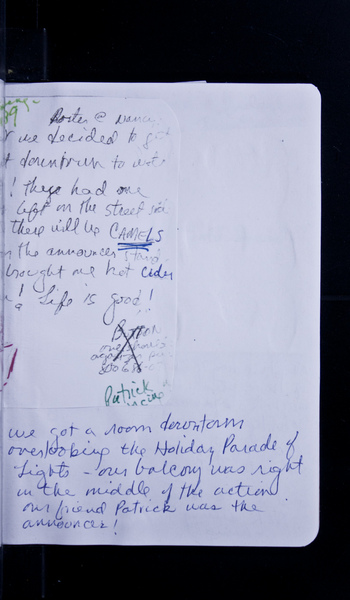 Porter @ Nanc
we decided to get
downtown to watch
! They had one
left on the street side
there will be CAMELS
n the announcer stand
brought me hot cider
! Life is good!
Patrick
we got a room downtown
overlooking the Holiday Parade of
Lights - our balcony was right
in the middle of the action
our friend Patrick was the
announcer!